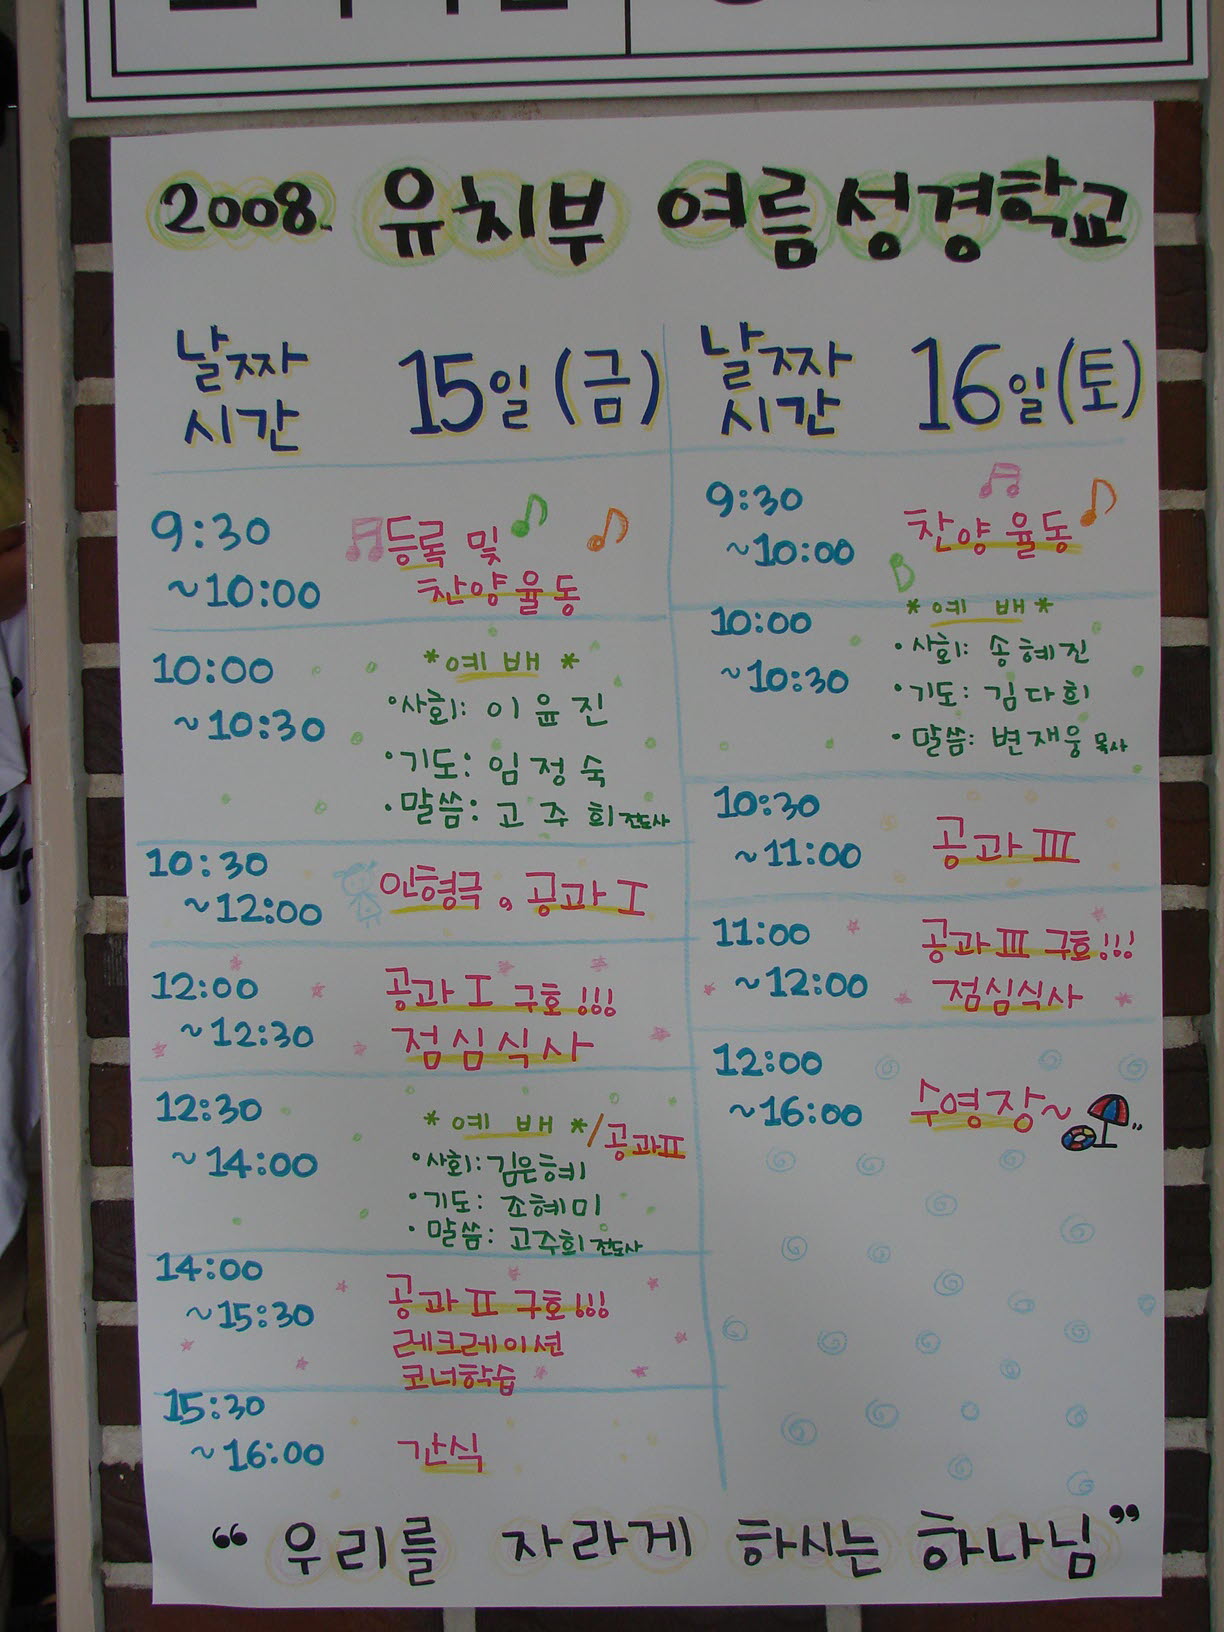 2008. 유치부 여름성경학교
날짜
시간
15일 (금)
9:30
~10:00
등록 및
찬양율동
10:00
~10:30
*예배*
·사회: 이윤진
·기도: 임정숙
·말씀: 고주희 전도사
10:30
~12:00
인형극, 공과 I
12:00
~12:30
공과 I 구호!!!
점심식사
12:30
~14:00
*예배*/공과II
·사회: 김은혜
·기도: 조혜미
·말씀: 고주희 전도사
14:00
~15:30
공과 II 구호!!!
레크레이션
코너학습
15:30
~16:00
간식
날짜
시간
16일(토)
9:30
~10:00
찬양율동
10:00
~10:30
*예배*
·사회: 송혜진
·기도: 김다희
·말씀: 변재웅 목사
10:30
~11:00
공과 III
11:00
~12:00
공과 III 구호!!!
점심식사
12:00
~16:00
수영장~
“우리를 자라게 하시는 하나님”